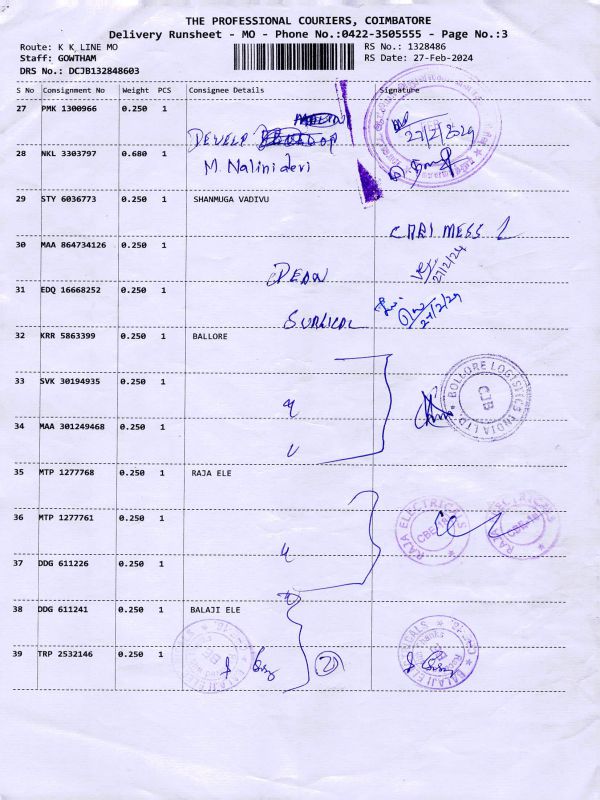 THE PROFESSIONAL COURIERS, COIMBATORE
Delivery Runsheet - MO - Phone No.:0422-3505555 - Page No.:3
Route: K K LINE MO
RS No.: 1328486
Staff: GOWTHAM
RS Date: 27-Feb-2024
DRS No.: DCJB132848603
S No Consignment No Weight PCS Consignee Details Signature
27 PMK 1300966 0.250 1
DEVELP
27/2/2024
28 NKL 3303797 0.680 1 M. Nalinidevi
29 STY 6036773 0.250 1 SHANMUGA VADIVU
30 MAA 864734126 0.250 1 CARI MESS
DEAN
27/2/24
31 EDQ 16668252 0.250 1
SURGICAL
27/2/24
32 KRR 5863399 0.250 1 BALLORE
BOLLORE LOGISTICS INDIA LTD. * CJB
33 SVK 30194935 0.250 1
34 MAA 301249468 0.250 1
35 MTP 1277768 0.250 1 RAJA ELE
36 MTP 1277761 0.250 1
RAJA ELECTRICALS * CBE-18
RAJA ELECTRICALS * CBE-18
37 DDG 611226 0.250 1
38 DDG 611241 0.250 1 BALAJI ELE
39 TRP 2532146 0.250 1
BALAJI ELE